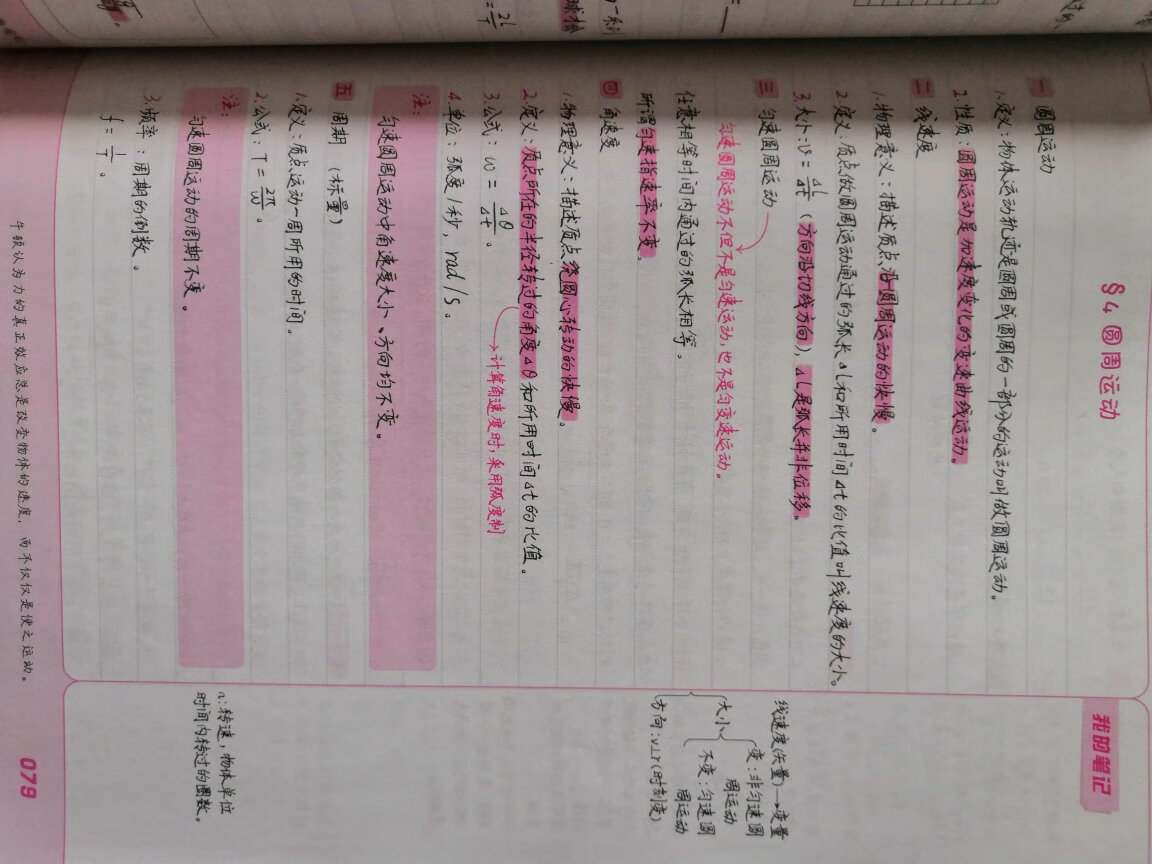 §4 圆周运动
一 圆周运动
1.定义:物体运动轨迹是圆周或圆周的一部分的运动叫做圆周运动。
2.性质:圆周运动是加速度变化的变速曲线运动。
二 线速度
1.物理意义:描述质点沿圆周运动的快慢。
2.定义:质点做圆周运动通过的弧长ΔL和所用时间Δt的比值叫线速度的大小。
3.大小:v=ΔL/Δt(方向沿切线方向),ΔL是弧长并非位移。
三 匀速圆周运动
匀速圆周运动不但不是匀速运动,也不是匀变速运动。
任意相等时间内通过的弧长相等。
所谓匀速指速率不变。
四 角速度
1.物理意义:描述质点绕圆心转动的快慢。
2.定义:质点所在的半径转过的角度Δθ和所用时间Δt的比值。
→计算角速度时,采用弧度制
3.公式:ω=Δθ/Δt。
4.单位:弧度/秒,rad/s。
注:
匀速圆周运动中角速度大小、方向均不变。
五 周期(标量)
1.定义:质点运动一周所用的时间。
2.公式:T=2π/ω。
注:
匀速圆周运动的周期不变。
3.频率:周期的倒数。
f=1/T。
我的笔记
线速度(矢量)→变量
大小
变:非匀速圆
周运动
不变:匀速圆
周运动
方向:v⊥r(时刻变)
n:转速,物体单位
时间内转过的圈数。
牛顿认为力的真正效应总是改变物体的速度,而不仅仅是使之运动。
079